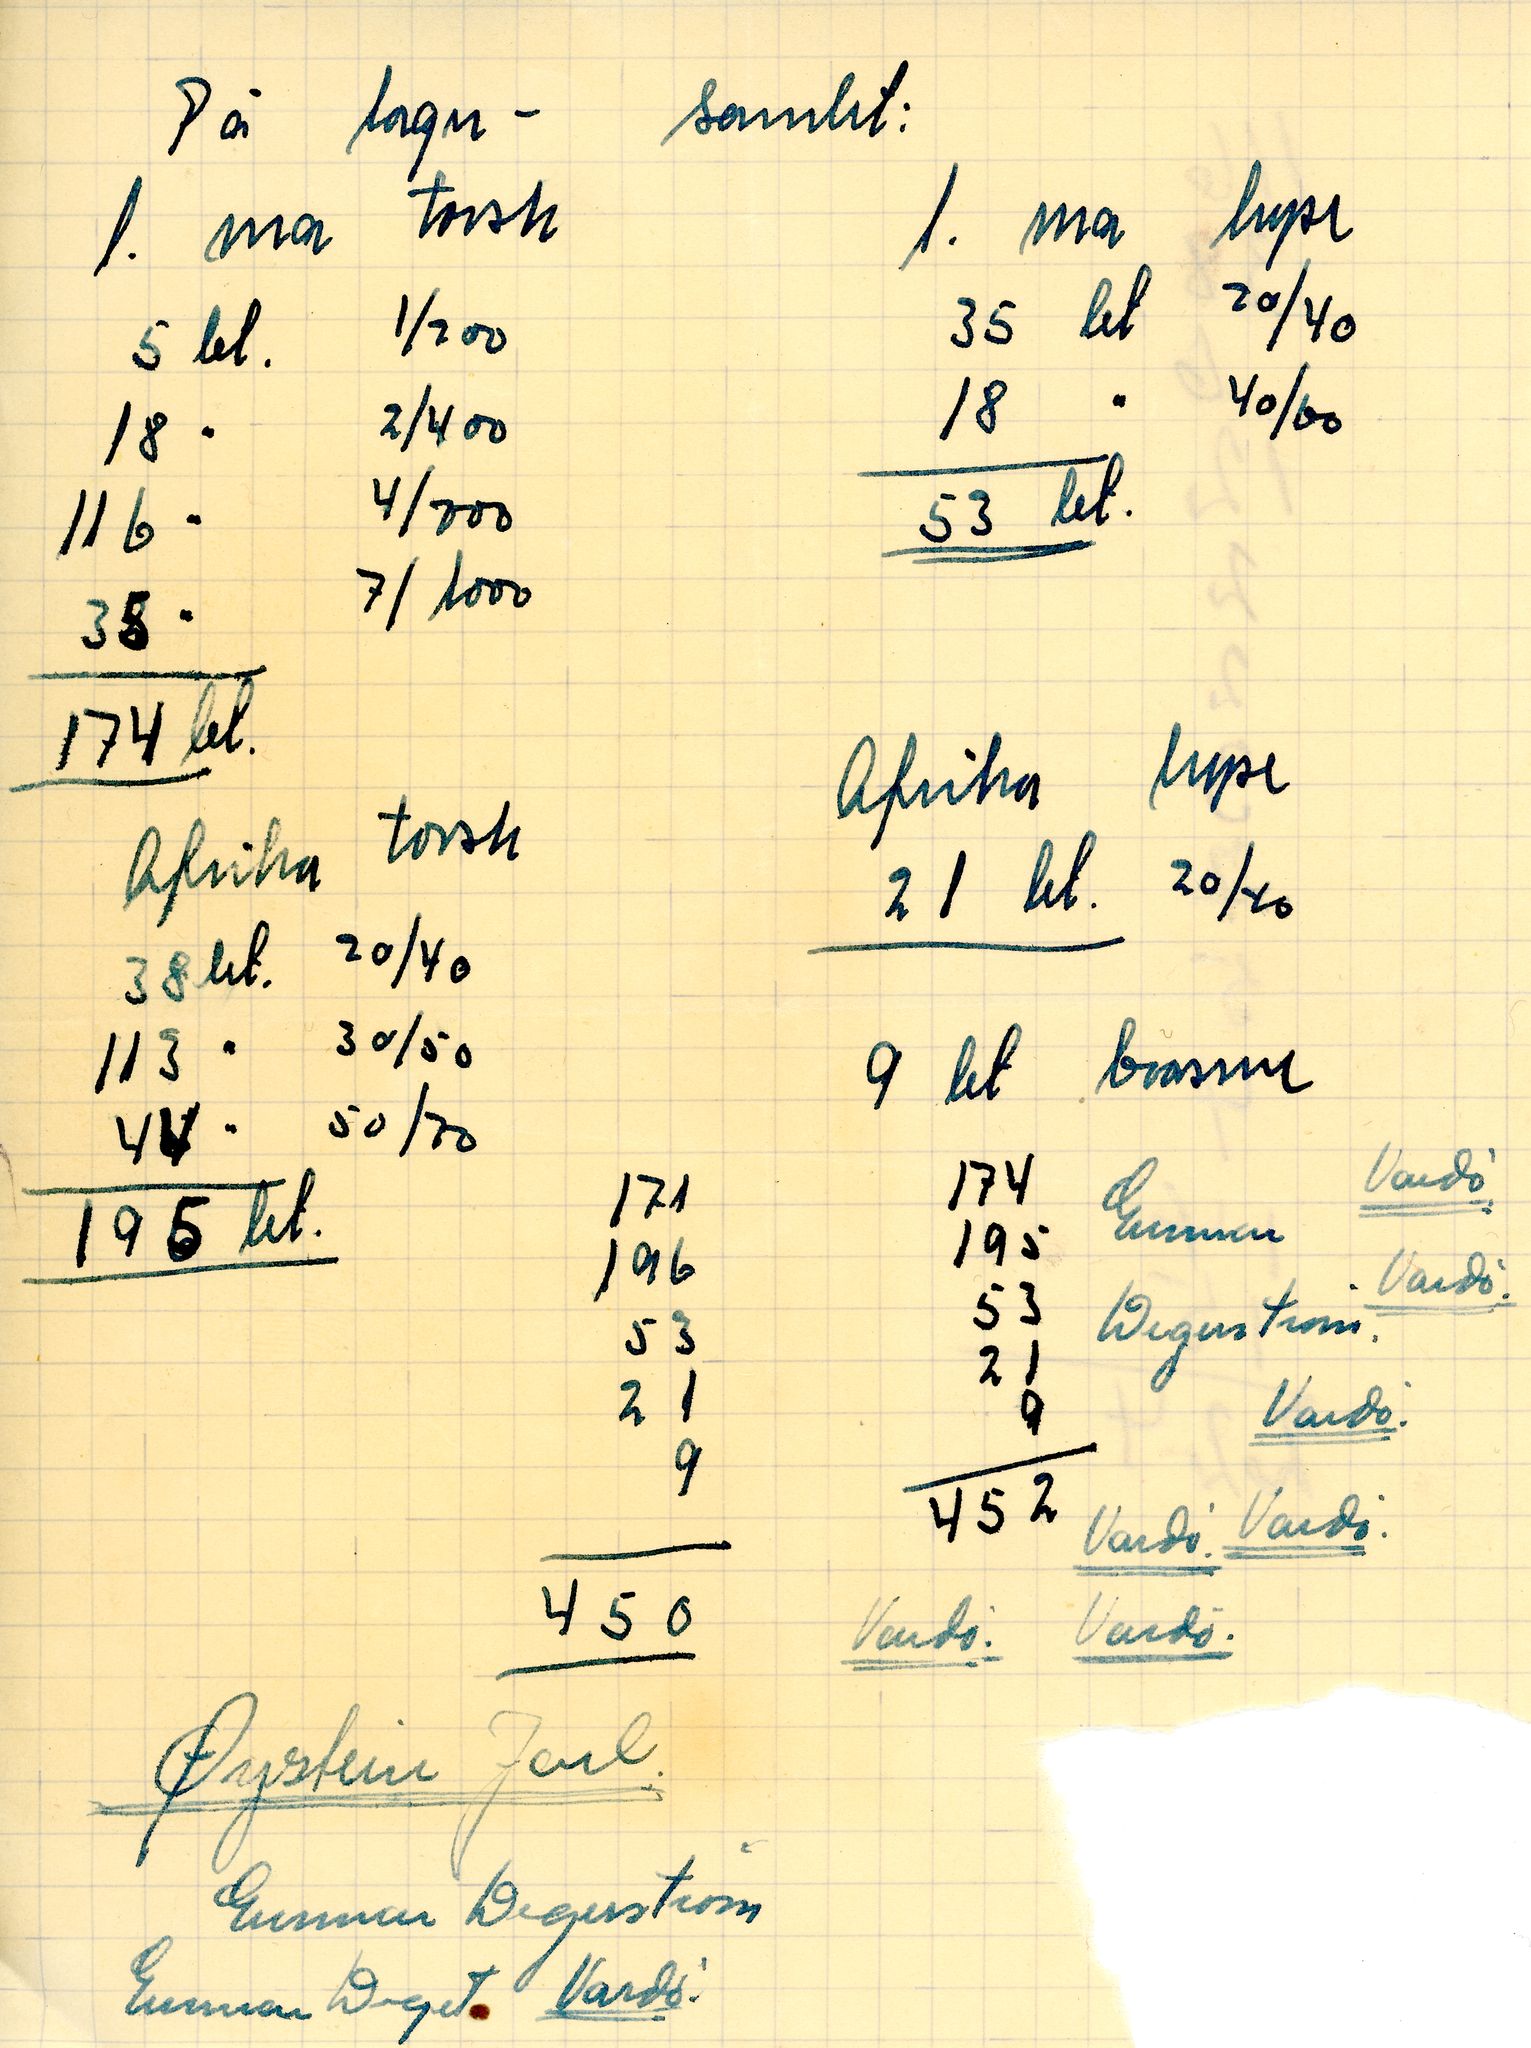 På lagr - samlet:
1. ma torsk
5 bt. 1/200
18 " 2/400
116 " 4/700
35 " 7/1000
174 bt.
Afrika torsk
38 bt. 20/40
113 " 30/50
44 " 50/70
195 bt.
1. ma hyse
35 bt 20/40
18 " 40/60
53 bt.
Afrika hyse
21 bt. 20/40
9 bt brosme
171
196
53
21
9
450
174
195
53
21
9
452
Gunnar Vardö
Degerström. Vardö.
Vardö.
Vardö. Vardö.
Vardö. Vardö.
Øystein Jarl.
Gunnar Degerström
Gunnar Deget. Vardö.